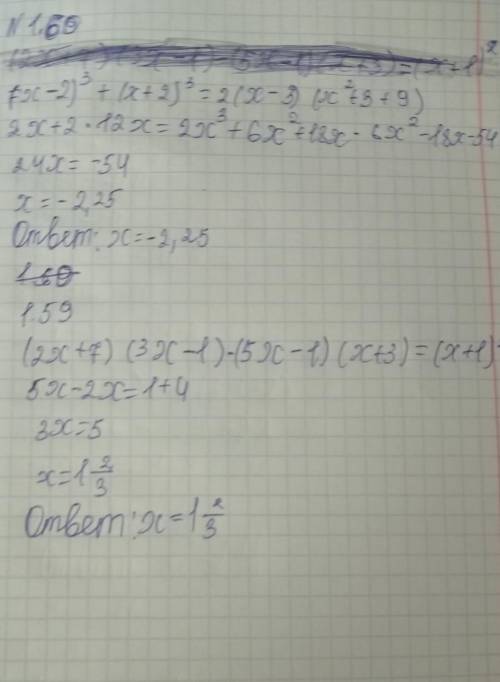 N 1.60
(x-2)³ + (x+2)³ = 2(x-3) (x²+3+9)
2x+2·12x = 2x³+6x²+18x - 6x²-18x-54
24x = -54
x = -2,25
Ответ: x = -2,25
1.59
(2x+7) (3x-1)-(5x-1) (x+3) = (x+1)
5x-2x=1+4
3x=5
x=1 2/3
Ответ: x=1 2/3